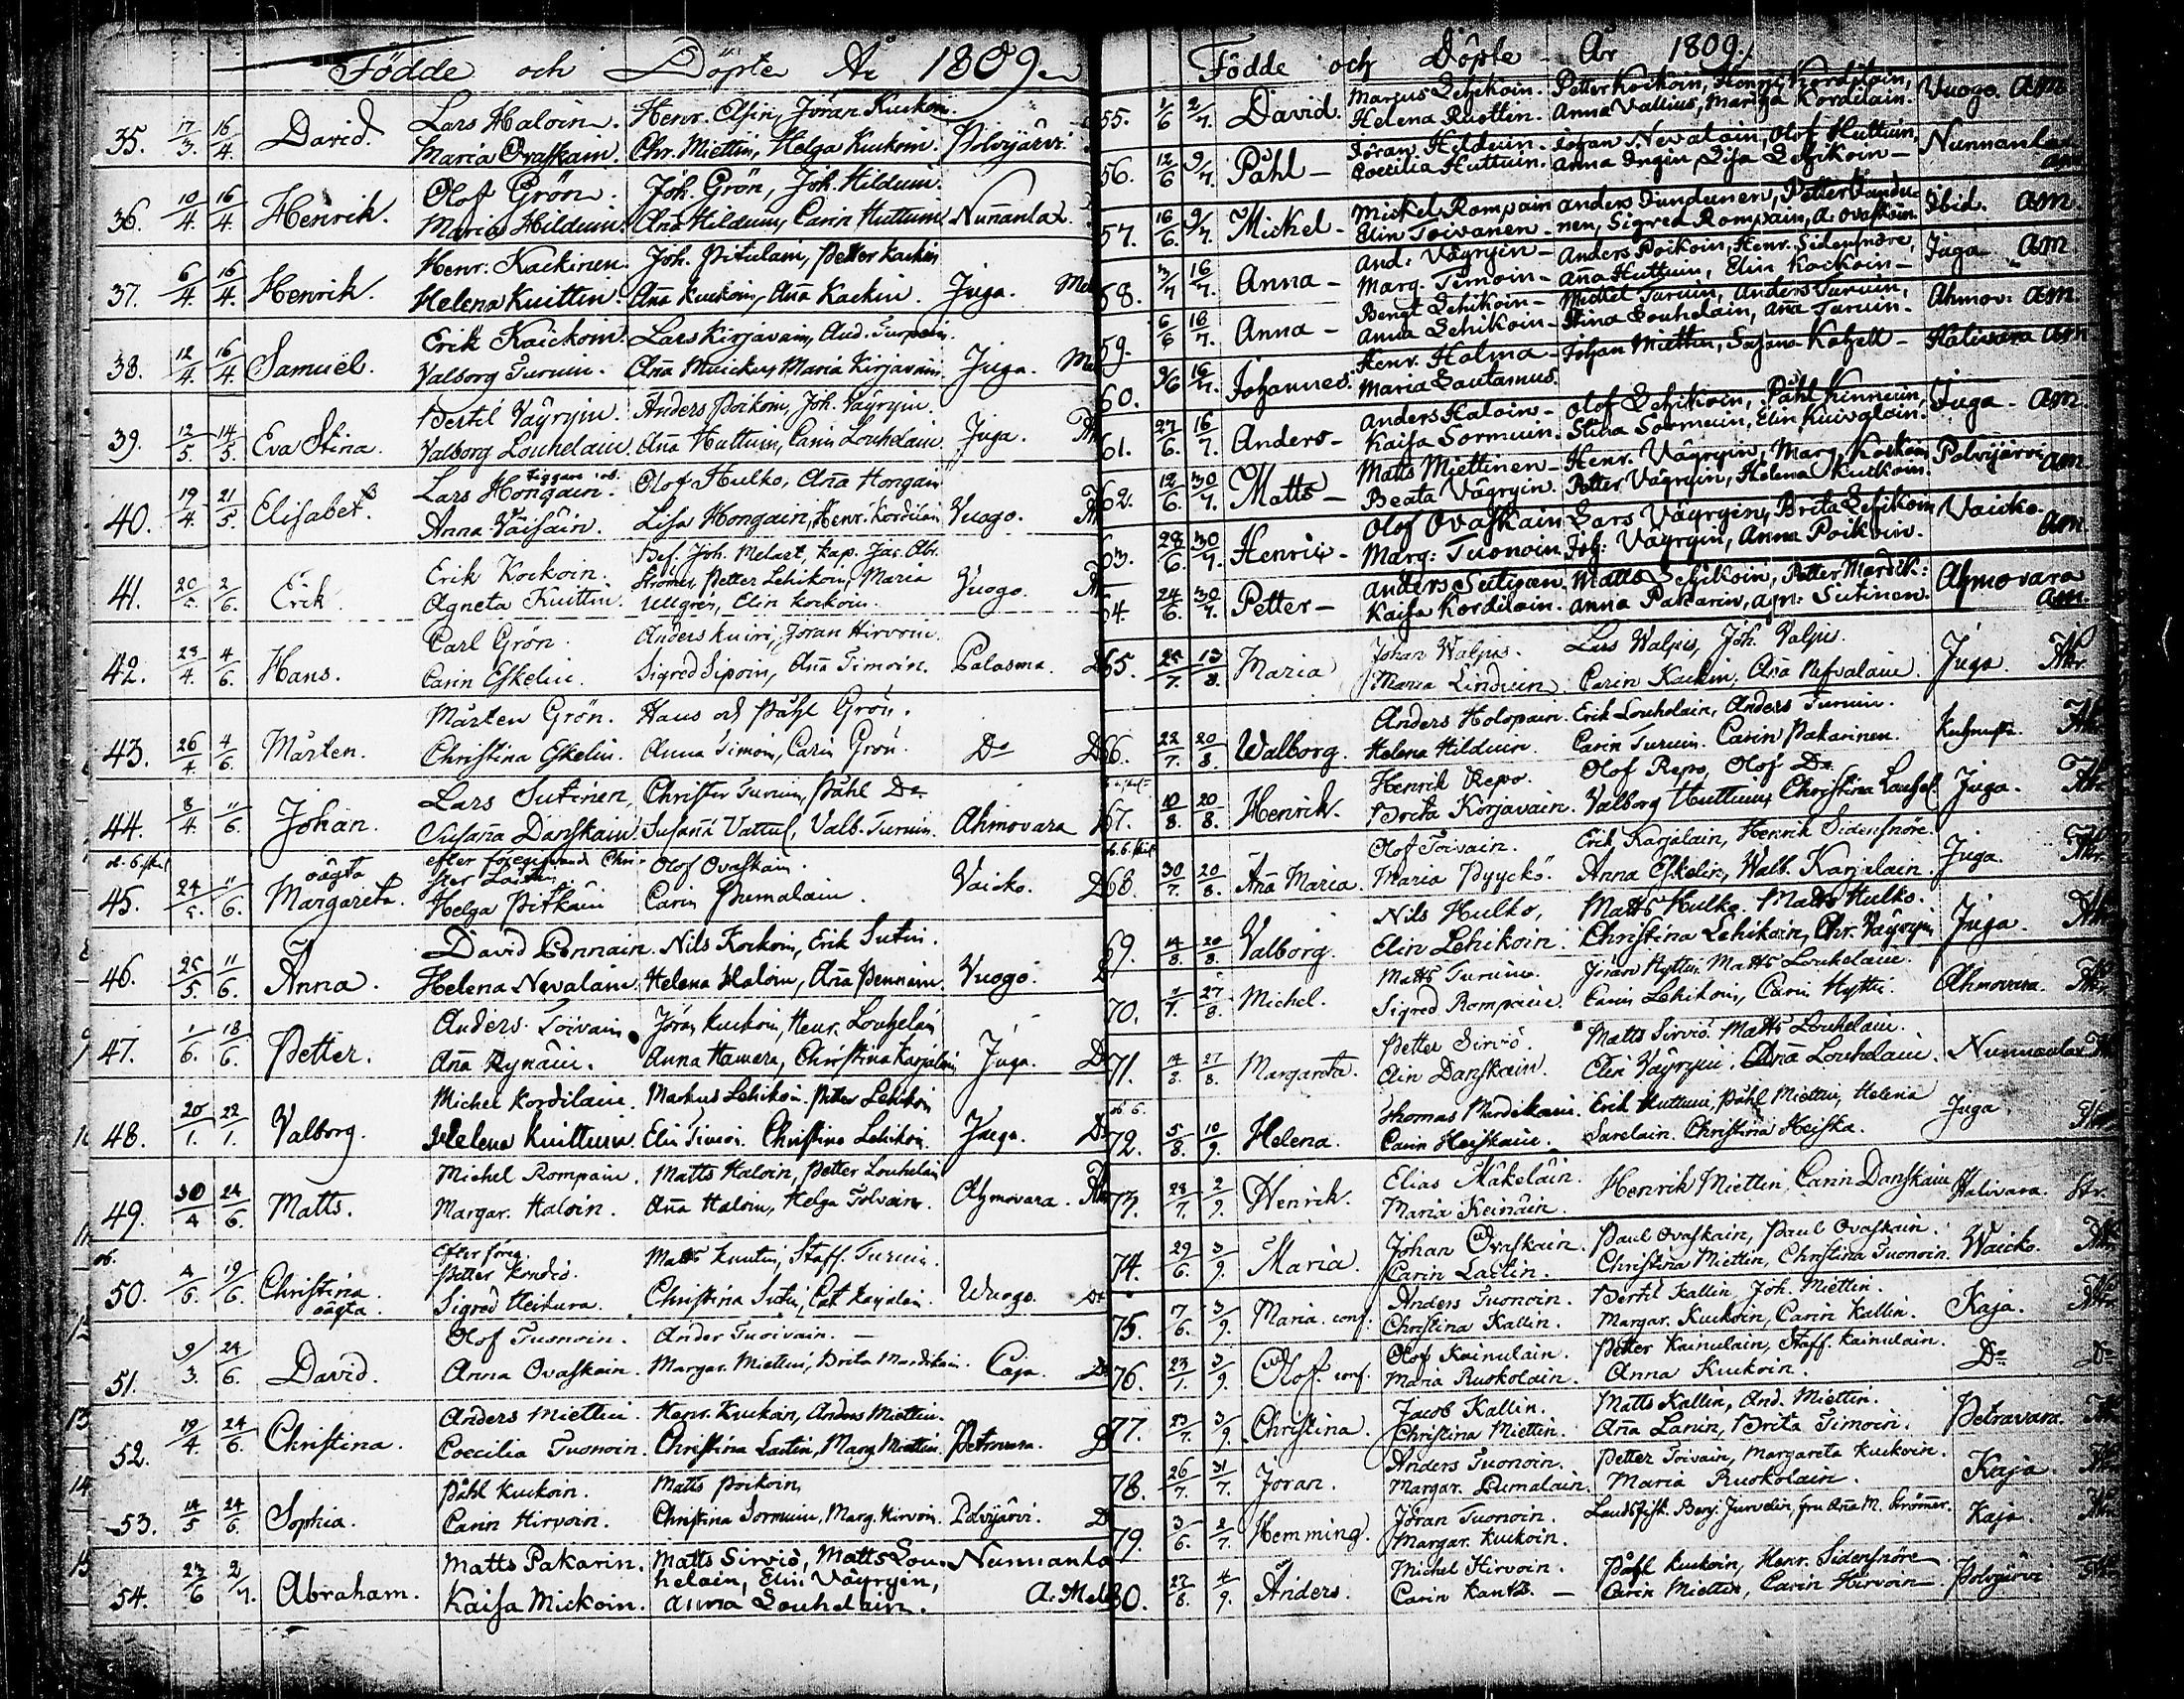 Födde och Döpte År 1809.
35. 17/3. 16/4. David. Lars Haloin. Henr. Asin, Jöran Kuckoin.
Maria Ovaskain. Chr. Miettin, Helga Kuckoin. Polvijärvi.
36. 10/4. 16/4. Henrik. Olof Grön. Joh. Grön, Joh. Hilduin.
Maria Hilduin. Aña Hilduin, Carin Huttuin. Nuñanlax.
37. 6/4. 16/4. Henrik. Henr. Kackinen. Joh. Pitulain, Petter Kackin
Helena Kuittin. Aña Kuckoin, Aña Kackin. Juga.
38. 12/4. 16/4. Samuel. Erik Kaickoin. Lars Kirjavain, And. Turpain.
Valborg Turuin. Aña Muicku, Maria Kirjavain. Juga.
39. 12/5. 14/5. Eva Stina. Bertil Väyryin. Anders Poikoin, Joh. Väyryin.
Valborg Louhelain. Aña Huttuin, Carin Louhelain. Juga.
40. 19/4. 21/5. Elisabet. Lars Hongain. Olof Hulko, Aña Hongain
Anna Väisäin. Lisa Hongain, Henr. Kordilain Vuogo.
41. 20/5. 2/6. Erik. Erik Kockoin. Bef. Joh. Melart, Kap. Jac. Abr.
Agneta Kuittin. Strömer, Petter Lehikoin, Maria
Ullgren, Elin Kockoin. Vuogo.
42. 23/4. 4/6. Hans. Carl Grön. Anders Kuiri, Jöran Hirvoin.
Carin Eskelin. Sigred Sipoin, Aña Timoin. Palasma.
43. 26/4. 4/6. Mårten. Mårten Grön. Hans och Påhl Grön.
Christina Eskelin. Anna Timoin, Carin Grön. Do
44. 8/4. 11/6. Johan. Lars Sutinen, Christer Turuin, Påhl Do
Susaña Danskain. Susaña Vattul, Valb. Turuin. Ahmovara
45. 24/5. 11/6. oägta Margareta. efter föregifvande Chri-
ster Laitin Olof Ovaskain.
Helga Pitkäin Carin Pumalain. Vaiko.
46. 25/5. 11/6. Anna. David Pennain. Nils Kockoin, Erik Sutin.
Helena Nevalain. Helena Haloin, Aña Pennain. Vuogo.
47. 1/6. 18/6. Petter. Anders Toivain. Jöran Kuckoin, Henr. Louhelain
Aña Rynäin. Anna Hamera, Christina Karjalain Juga.
48. 20/1. 22/1. Valborg. Michel Kordilain. Markus Lehikoin, Petter Lehikoin
Helena Kuittuin. Elin Timoin. Christina Lehikoin. Juga.
49. 30/4 24/6. Matts. Michel Rompain. Matts Haloin, Petter Louhelain
Margar. Haloin. Aña Haloin, Helga Toivain. Ahmovara.
50. 4/6. 19/6. Christina oägta. Efter föreg.
Petter Kondio. Matts Knutin, Staff. Turuin.
Sigred Heikura. Christina Sutin, Wuogo.
51. 9/3. 24/6. David. Olof Tuonoin. Ander Tuoivain.
Anna Ovaskain. Margar. Miettin, Brita Mardikain. Caja.
52. 19/4. 24/6. Christina. Anders Miettin. Henr. Kuckoin, Anders Miettin.
Coecilia Tuonoin. Christina Laitin, Marg. Miettin. Petravara.
53. 14/5 24/6. Sophia. Påhl Kuckoin. Matts Poikoin,
Carin Hirvoin. Christina Sormuin, Marg. Hirvoin. Polvijärvi.
54. 23/6 2/7. Abraham. Matts Pakarin. Matts Sirviö, Matts Lou-
helain, Elin Väyryin, Nunnanla
Kaisa Mickoin. Anna Louhelain. A. Mel
Födde och Döpte År 1809.
55. 1/6 2/7. David. Marcus Lehikoin. Petter Kockoin, Henr. Kordilain,
Helena Ruottin. Anna Vallius, Mariga Kordilain. Vuogo. am
56. 12/6 9/7. Påhl Jöran Hilduin. Johan Nevalain, Olof Huttuin,
Coecilia Huttuin. Anna Ingin, Lisa Lehikoin Nunnanlax
57. 16/6. 9/7. Mickel Mickel Rompain Anders Dundunen, Petter Dundu-
Elin Toivanen nen, Sigred Rompain, A. Ovaskain. Ibid. am
58. 3/7 16/7. Anna And. Väyryin Anders Poikoin, Henr. Sidensnöre,
Marg. Timoin Aña Huttuin, Elin Kockoin Juga am
59. 6/6 16/7. Anna Bengt Lehikoin Mickel Turuin, Anders Turuin,
Anna Lehikoin Stina Louhelain, Aña Turuin. Ahmov: am.
60. 9/6 16/7. Johannes. Henr. Halma Johan Miettin, Susana Katzell Halivara am
Maria Lautamus.
61. 27/6. 16/7. Anders Anders Haloin Olof Lehikoin, Påhl Kinnuin,
Kaisa Sormuin. Stina Sormuin, Elin Kuivalain. Juga am
62. 12/6. 30/7. Matts Matts Miettinen Henr. Väyryin, Marg. Kockoin
Beata Väyryin. Petter Väyryin, Helena Kuckoin. Polvijärvi am
63. 28/6. 30/7. Henric Olof Ovaskain Lars Väyryin, Brita Lehikoin
Marg: Tuonoin Joh: Väyryin, Anna Poikoin. Vaicko. am
64. 24/6. 30/7. Petter Anders Sutigen. Matts Lehikoin, Petter Mardik:
Kaisa Kordilain. Anna Pakarin, Agn: Sutinen. Ahmovara am.
65. 25/7. 13/8. Maria Johan Walpus. Lars Walpus, Joh. Valpus.
Maria Linduin. Carin Kackin, Aña Nefvalain. Juga.
66. 22/7. 20/8. Walborg. Anders Holopain. Erik Louhelain, Anders Turuin.
Helena Hilduin. Carin Turuin. Carin Pakarinen.
67. 10/8. 20/8. Henrik. Henrik Repo. Olof Repo, Olof Do
Brita Korjavain. Valborg Huttuin, Christina Louhel. Juga.
68. 30/7. 20/8. Aña Maria. Olof Toivain. Erik Karjalain, Henrik Sidensnöre.
Maria Pyyckö. Anna Eskelin, Walb. Karjalain. Juga.
69. 14/8. 20/8. Valborg. Nils Hulko, Matts Hulko. Matts Hulko.
Elin Lehikoin. Christina Lehikoin, Chr. Väyryin Juga.
70. 7/7. 27/8. Michel. Matts Turuin. Jöran Hyttin, Matts Louhelain.
Sigred Rompain. Carin Lehikoin, Carin Hyttin. Ahmovara.
71. 14/8. 27/8. Margareta. Petter Sirviö. Matts Sirviö. Matts Louhelain.
Elin Danskain. Elin Väyryin. Aña Louhelain. Nunnanlax
72. 5/8. 10/9. Helena. Thomas Mardikain. Erik Huttuin, Påhl Miettin, Helena
Carin Heiskain. Savelain. Christina Heiska. Juga
73. 28/7. 2/9. Henrik. Elias Mäkeläin. Henrik Miettin, Carin Danskain Halivara.
Maria Keinäin.
74. 29/6. 3/9. Maria. Johan Ovaskain. Paul Ovaskain, Paul Ovaskain.
Carin Laitin. Christina Miettin, Christina Tuonoin. Waicko.
75. 7/6. 3/9. Maria. conf. Anders Tuonoin. Bertil Kallin, Joh. Miettin.
Christina Kallin. Margar. Kuckoin, Carin Kallin. Kaja.
76. 23/7. 3/9. Olof. conf. Olof Kainulain. Petter Kainulain, Staff. Kainulain.
Maria Ruokolain. Anna Kuckoin. Do Do
77. 23/7. 3/9. Christina. Jacob Kallin. Matts Kallin, And. Miettin.
Christina Miettin. Aña Lanin, Brita Timoin. Petravara.
78. 26/7. 31/7. Jöran. Anders Tuonoin. Petter Toivain, Margareta Kuckoin.
Margar. Pumalain. Maria Ruokolain. Kaja
79. 3/6. 2/7. Hemming. Jöran Tuonoin. Landsfisk. Berg. Jurvelin, fru Aña M. Strömer. Kaja.
Margar. Kuckoin.
80. 27/8. 4/9. Anders. Michel Hirvoin. Påhl Kuckoin, Henr. Sidensnöre
Carin Kantel. Carin Miettin, Carin Hirvoin. Polvijärvi